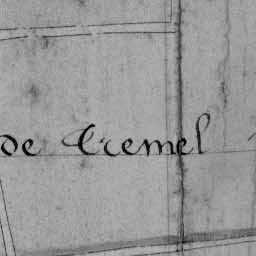 de Tremel